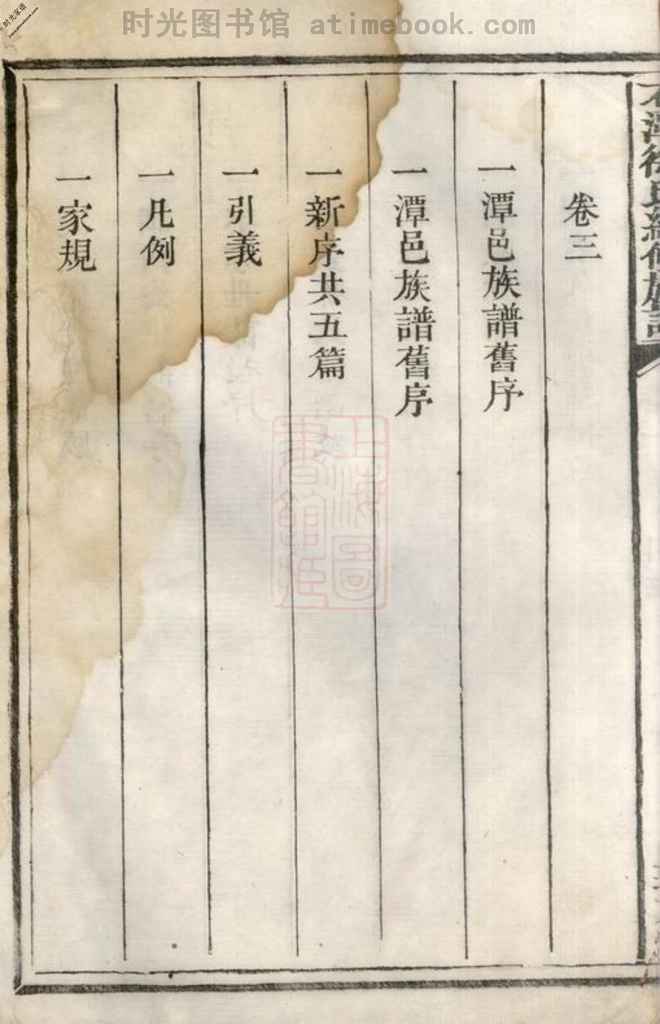 时光图书馆 & atimebook.com
卷三
一潭邑族譜舊序
一潭邑族譜舊序
一新序共五篇
一引義
一凡例
一家規